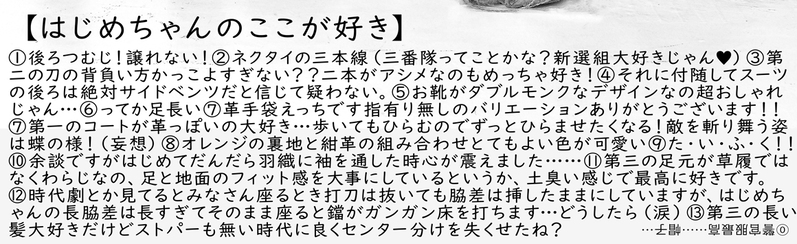 【はじめちゃんのここが好き】
①後ろつむじ！譲れない！②ネクタイの三本線（三番隊ってことかな？新選組大好きじゃん♥）③第
二の刀の背負い方かっこよすぎない？？二本がアシメなのもめっちゃ好き！④それに付随してスーツ
の後ろは絶対サイドベンツだと信じて疑わない。⑤お靴がダブルモンクなデザインなの超おしゃれ
じゃん…⑥ってか足長い⑦革手袋えっちです指有り無しのバリエーションありがとうございます！！
⑦第一のコートが革っぽいの大好き…歩いてもひらむのでずっとひらませたくなる！敵を斬り舞う姿
は蝶の様！（妄想）⑧オレンジの裏地と紺革の組み合わせとてもよい色が可愛い⑨た・い・ふ・く！！
⑩余談ですがはじめてだんだら羽織に袖を通した時心が震えました……⑪第三の足元が草履では
なくわらじなの、足と地面のフィット感を大事にしているというか、土臭い感じで最高に好きです。
⑫時代劇とか見てるとみなさん座るとき打刀は抜いても脇差は挿したままにしていますが、はじめち
ゃんの長脇差は長すぎてそのまま座ると鐺がガンガン床を打ちます…どうしたら（涙）⑬第三の長い
髪大好きだけどストパーも無い時代に良くセンター分けを失くせたね？
⓪警官服最高……帽子…